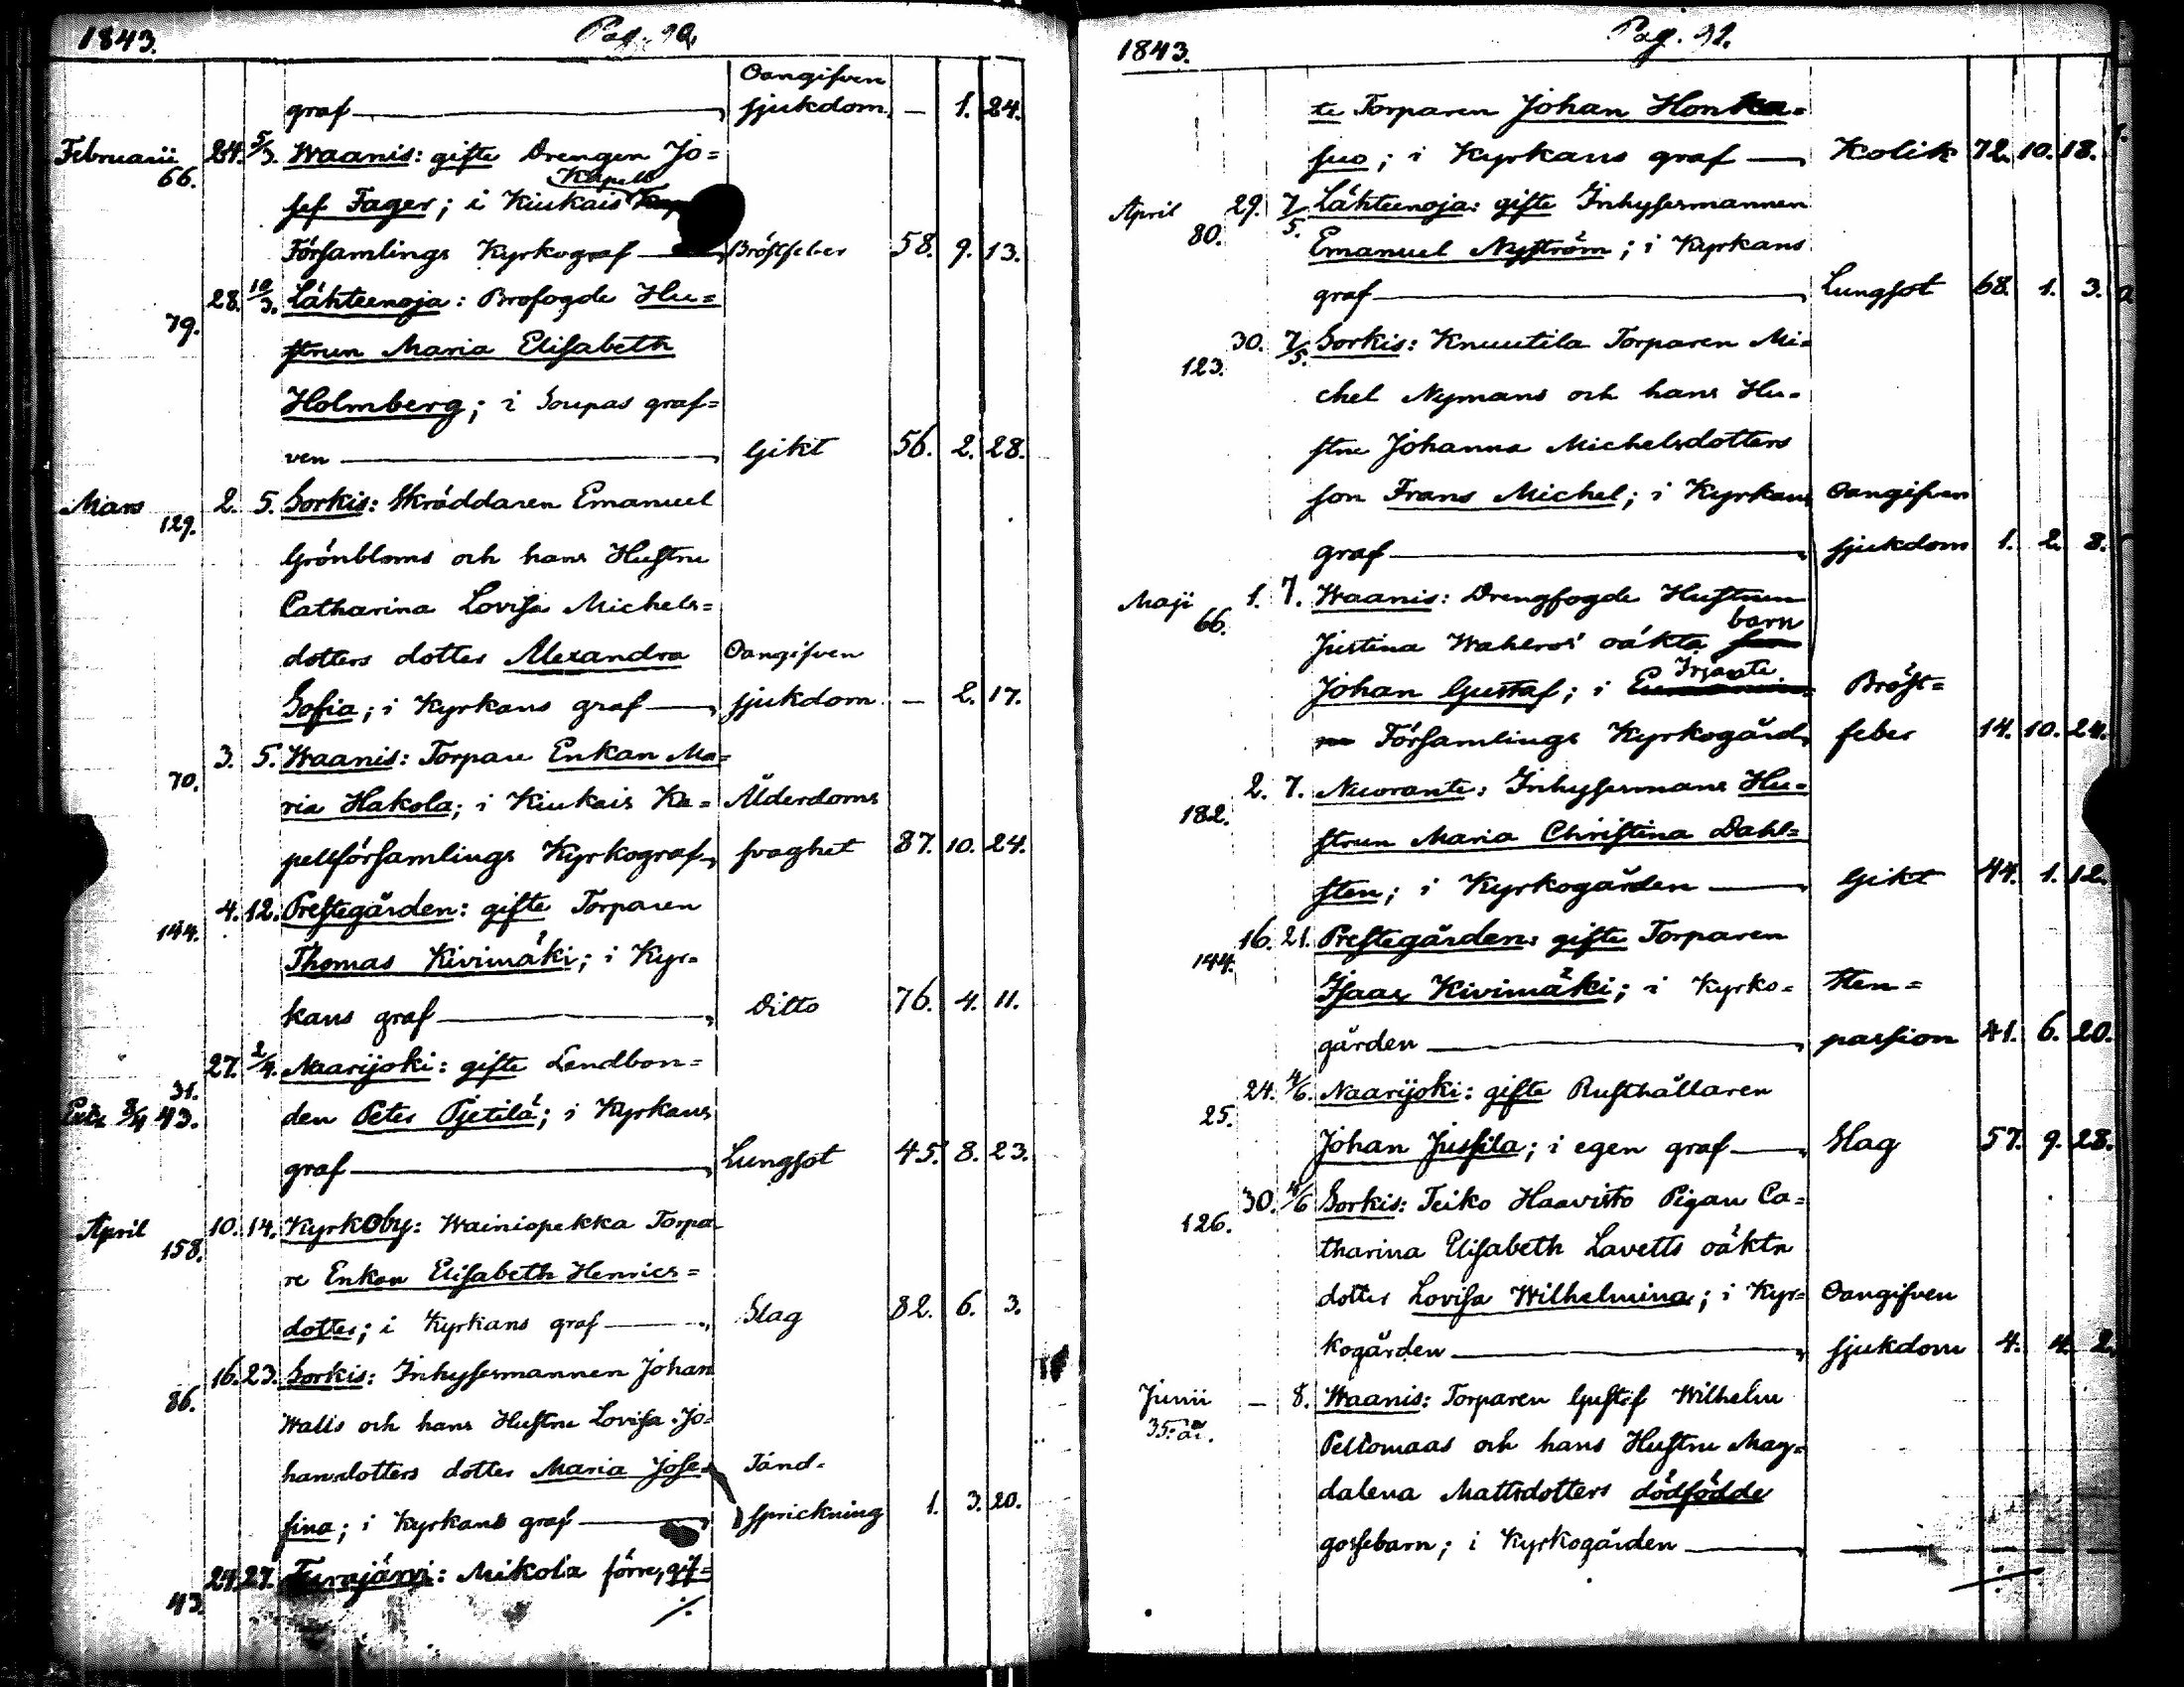 1843. Pag. 90.
Oangifven
graf — sjukdom. — 1. 24.
Februarii 24. 5/3. Waanis: gifte Drengen Jo=
66. Kapell
sef Fager; i Kiukais
Församlings Kyrkograf — Bröstfeber 58. 9. 13.
28. 10/3. Lähteenoja: Brofogde Hu=
79.
strun Maria Elisabeth
Holmberg; i Soupas graf=
ven — Gikt 56. 2. 28.
Mars 2. 5. Sorkis: Skräddaren Emanuel
129.
Grönbloms och hans Hustru
Catharina Lovisa Michels=
dotters dotter Alexandra Oangifven
Sofia; i Kyrkans graf — sjukdom. — 2. 17.
3. 5. Waanis: Torpare Enkan Ma=
70.
ria Hakola; i Kiukais Ka= Ålderdoms
pellförsamlings Kyrkograf, svaghet 87. 10. 24.
4. 12. Prestegården: gifte Torparen
144.
Thomas Kivimäki; i Kyr=
kans graf — Ditto 76. 4. 11.
27. 2/4. Naarijoki: gifte Landbon=
31.
43. den Peter Pjetilä; i Kyrkans
graf — Lungsot 45. 8. 23.
April 10. 14. Kyrkoby: Wainiopekka Torpa
158.
re Enkan Elisabeth Henrics=
dotter; i Kyrkans graf — Slag 82. 6. 3.
16. 23. Sorkis: Inhysesmannen Johan
86.
Walls och hans Hustru Lovisa Jo=
hansdotters dotter Maria Jose= Tand=
fina; i Kyrkans graf — sprickning 1. 3. 20.
24. 27. Turajärvi: Mikola förre, gif=
43.
./.
1843. Pag. 91.
te Torparen Johan Honka=
suo; i Kyrkans graf — Kolik 72. 10. 18.
April 29. 7/5. Lähteenoja: gifte Inhysesmannen
80.
Emanuel Nyström; i Kyrkans
graf — Lungsot 68. 1. 3.
30. 7/5. Sorkis: Knuutila Torparen Mi=
123.
chel Nymans och hans Hu=
stru Johanna Michelsdotters
son Frans Michel; i Kyrkans Oangifven
graf — sjukdom 1. 2. 8.
Maji 1. 7. Waanis: Drengfogde Hustrun
66. barn
Justina Wahlros' oäkta
Irjante
Johan Gustaf; i Bröst=
Församlings Kyrkogård, feber 14. 10. 24.
2. 7. Neuvante: Inhysesmans Hu=
182.
strun Maria Christina Dahl=
sten; i Kyrkogården — Gikt 44. 1. 12.
16. 21. Prestegården: gifte Torparen
144.
Isaac Kivimäki; i Kyrko= Sten=
gården — passion 41. 6. 20.
24. 4/6. Naarijoki: gifte Rusthållaren
25.
Johan Jussila; i egen graf — Slag 57. 9. 28.
30. 4/6 Sorkis: Teiko Haavisto Pigan Ca=
126.
tharina Elisabeth Lavetts oäkta
dotter Lovisa Wilhelmina; i Kyr= Oangifven
kogården — sjukdom 4. 4. 2.
Junii — 8. Waanis: Torparen Gustaf Wilhelm
35. år.
Peltomaas och hans Hustru Mag=
dalena Mattsdotters dödfödde
gossebarn; i Kyrkogården —
./.